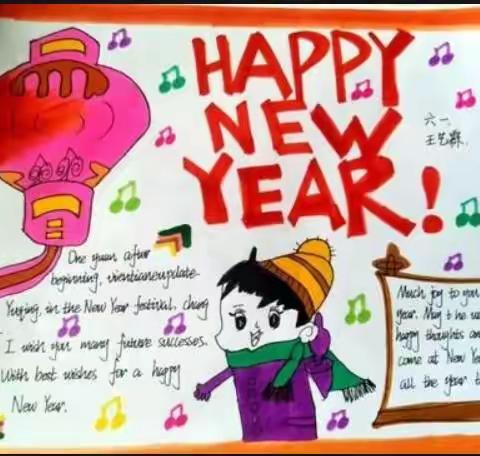 HAPPY
NEW
YEAR!
六一
One yuan after
beginning, vientianeupdate
Yuqing, in the New Year festival, chang
I wish you many future successes.
With best wishes for a happy
New Year.
Much joy to you
year. May the wa
happy thoughts an
come at New Yea
all the year t